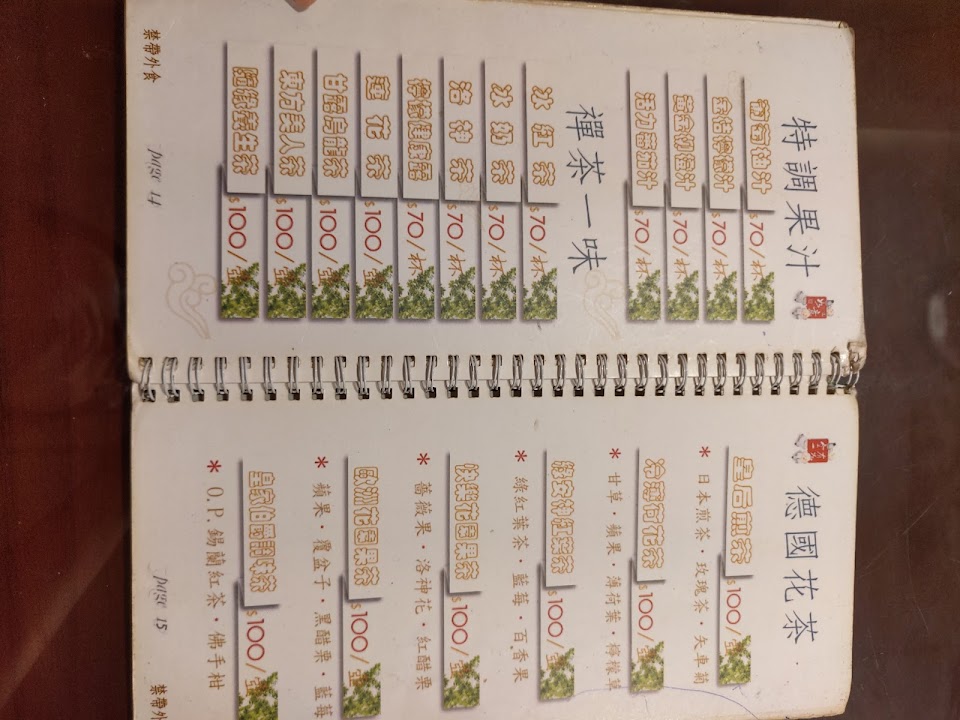 特調果汁
葡萄柚汁 $70/杯
金桔檸檬汁 $70/杯
黃金汁 $70/杯
活力蕃茄汁 $70/杯
禪茶一味
冰紅茶 $70/杯
冰奶茶 $70/杯
洛神茶 $70/杯
檸檬健康露 $70/杯
蓮花茶 $100/壺
甘露烏龍茶 $100/壺
東方美人茶 $100/壺
養生茶 $100/壺
禁帶外食
page 14
德國花茶
皇后煎茶 $100/壺
*日本煎茶・玫瑰茶・矢車菊
荷花茶 $100/壺
*甘草・蘋果・薄荷葉・檸檬
果茶 $100/壺
*綠紅葉茶・藍莓・百香果
花園果茶 $100/壺
*薔薇果・洛神花・紅醋栗
歐洲花園果茶 $100/壺
*蘋果・覆盆子・黑醋栗・藍莓
皇家伯爵茶 $100/壺
*O.P.錫蘭紅茶・佛手柑
page 15
禁帶外